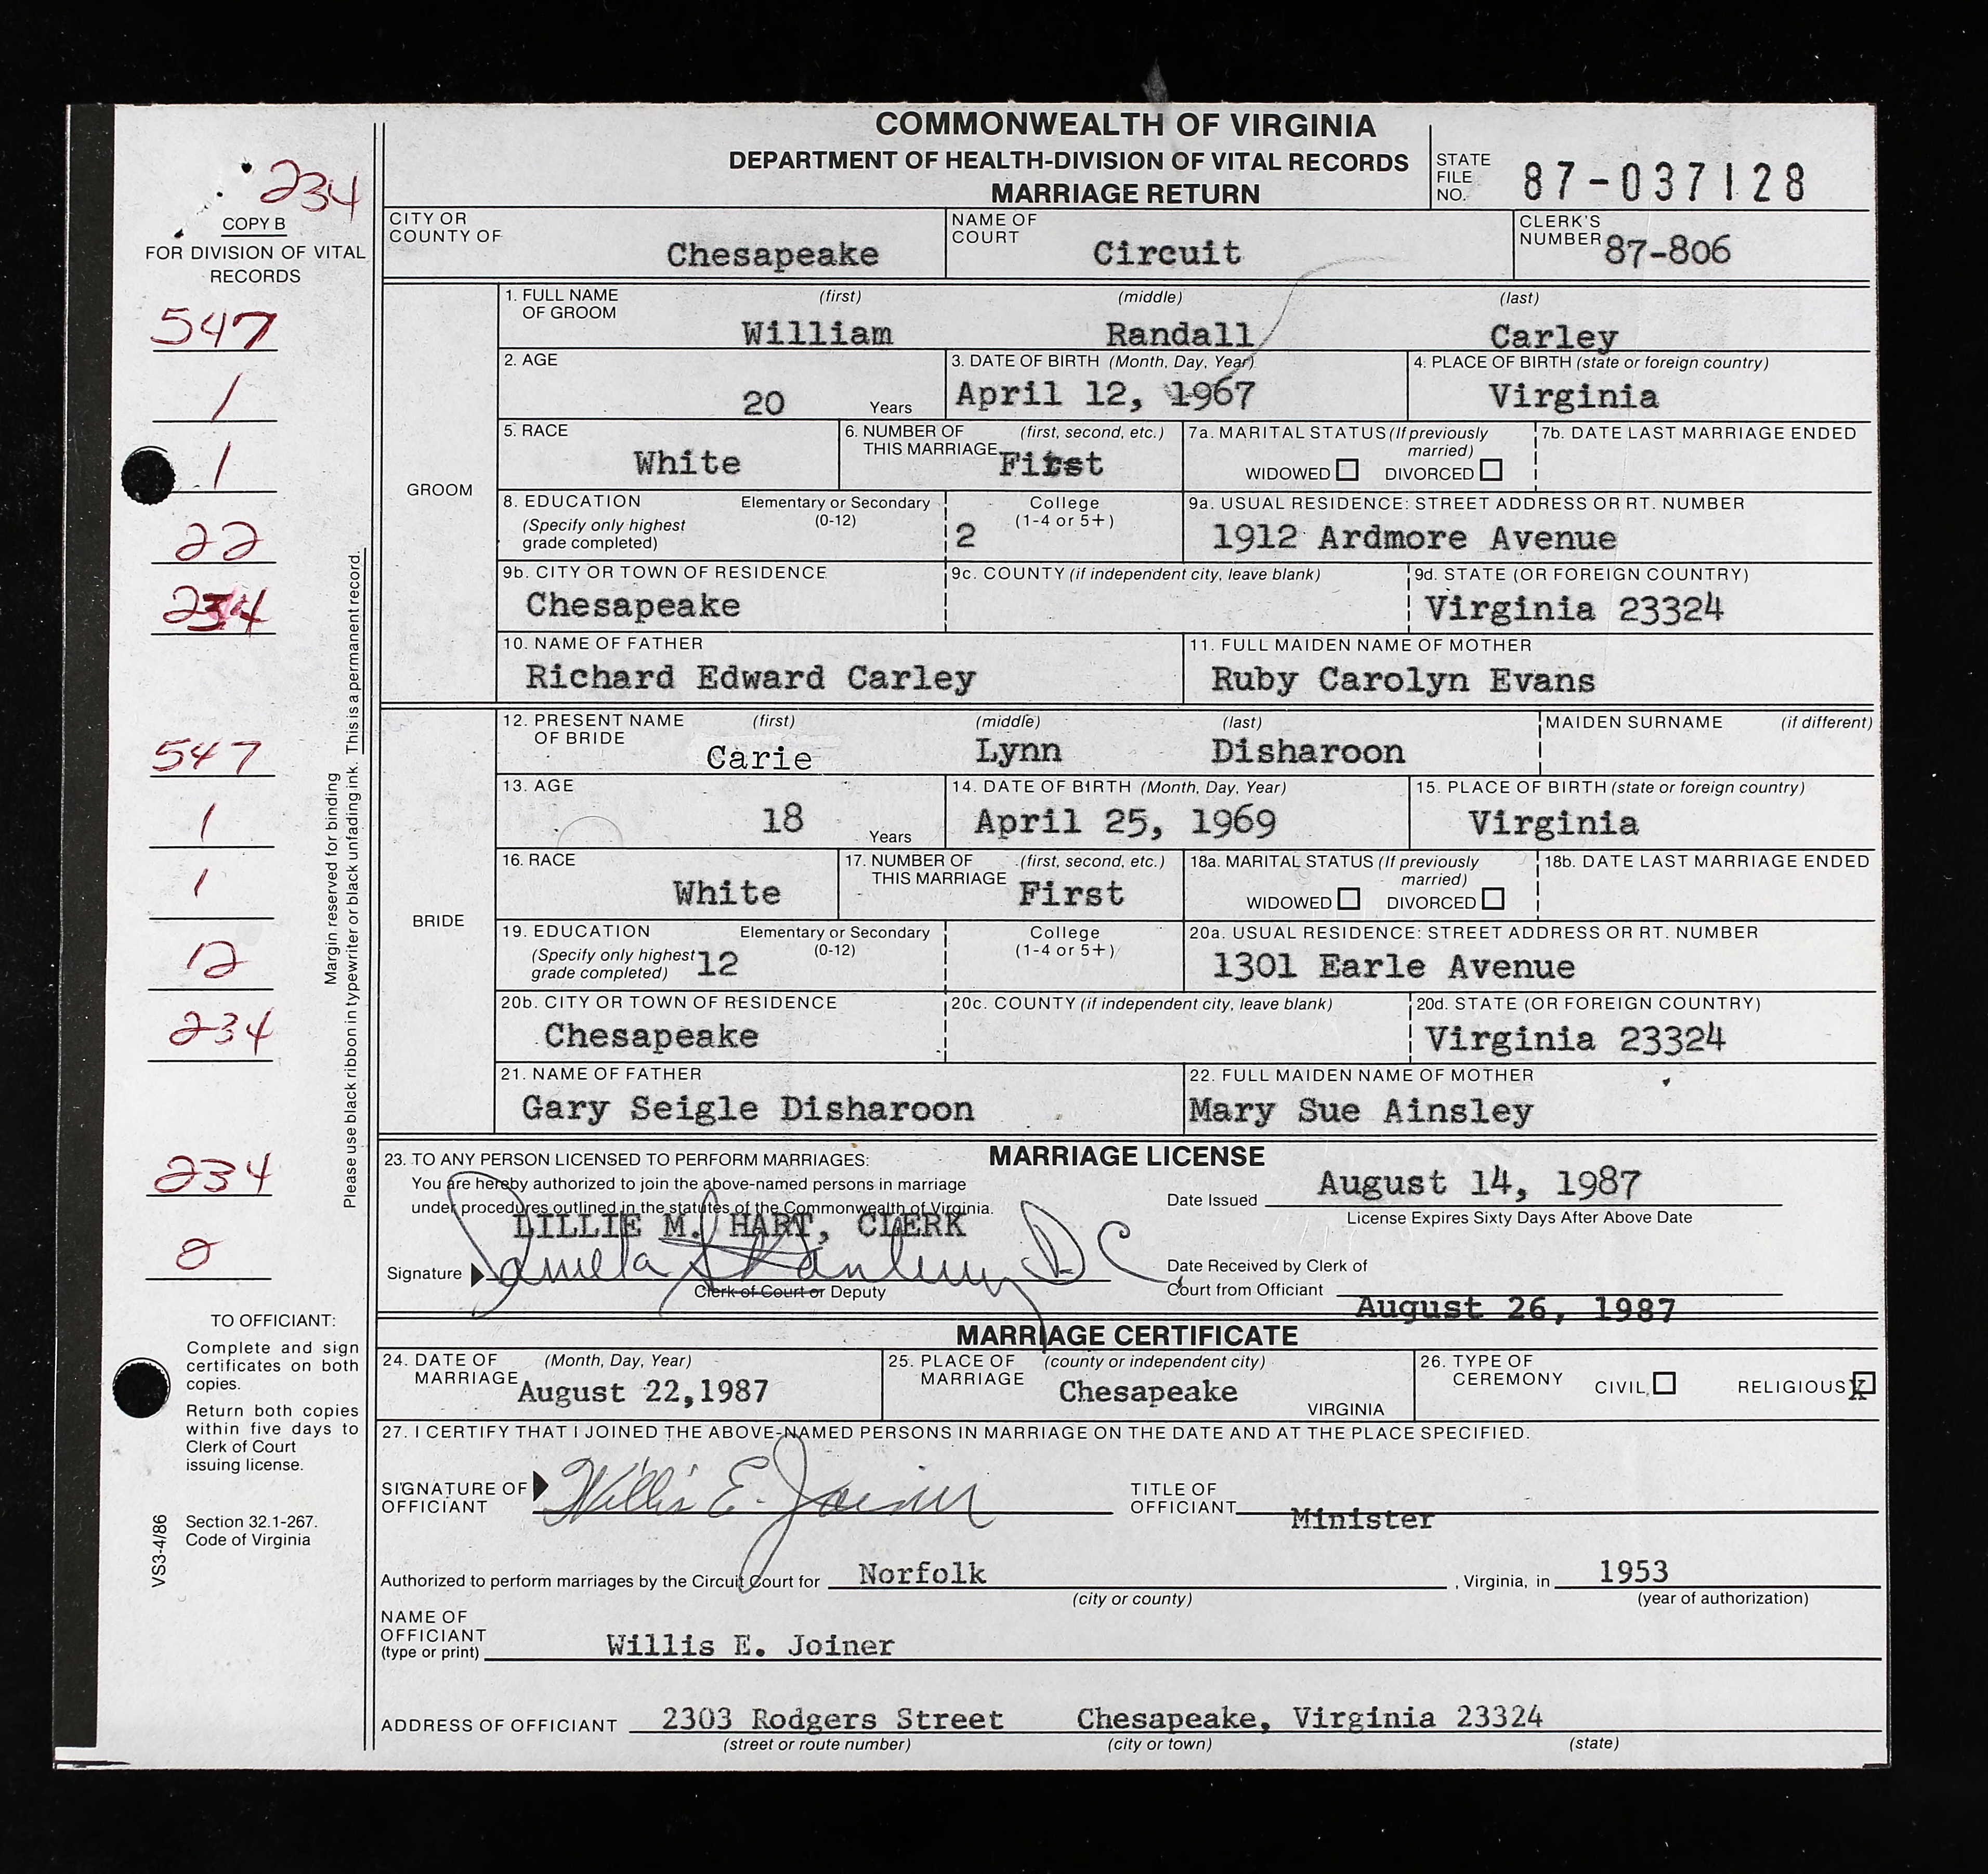 COMMONWEALTH OF VIRGINIA
DEPARTMENT OF HEALTH-DIVISION OF VITAL RECORDS
MARRIAGE RETURN
STATE FILE NO. 87-037128
234
COPY B
FOR DIVISION OF VITAL RECORDS
547
1
1
22
234
547
1
1
12
234
234
0
Margin reserved for binding
Please use black ribbon in typewriter or black unfading ink. This is a permanent record.
TO OFFICIANT:
Complete and sign
certificates on both
copies.
Return both copies
within five days to
Clerk of Court
issuing license.
Section 32.1-267.
Code of Virginia
VS3-4/86
CITY OR COUNTY OF Chesapeake
NAME OF COURT Circuit
CLERK'S NUMBER 87-806
GROOM
1. FULL NAME OF GROOM (first) William (middle) Randall (last) Carley
2. AGE 20 Years
3. DATE OF BIRTH (Month, Day, Year) April 12, 1967
4. PLACE OF BIRTH (state or foreign country) Virginia
5. RACE White
6. NUMBER OF THIS MARRIAGE (first, second, etc.) First
7a. MARITAL STATUS (If previously married) WIDOWED DIVORCED
7b. DATE LAST MARRIAGE ENDED
8. EDUCATION (Specify only highest grade completed) Elementary or Secondary (0-12) College (1-4 or 5+) 2
9a. USUAL RESIDENCE: STREET ADDRESS OR RT. NUMBER 1912 Ardmore Avenue
9b. CITY OR TOWN OF RESIDENCE Chesapeake
9c. COUNTY (if independent city, leave blank)
9d. STATE (OR FOREIGN COUNTRY) Virginia 23324
10. NAME OF FATHER Richard Edward Carley
11. FULL MAIDEN NAME OF MOTHER Ruby Carolyn Evans
BRIDE
12. PRESENT NAME OF BRIDE (first) Carie (middle) Lynn (last) Disharoon MAIDEN SURNAME (if different)
13. AGE 18 Years
14. DATE OF BIRTH (Month, Day, Year) April 25, 1969
15. PLACE OF BIRTH (state or foreign country) Virginia
16. RACE White
17. NUMBER OF THIS MARRIAGE (first, second, etc.) First
18a. MARITAL STATUS (If previously married) WIDOWED DIVORCED
18b. DATE LAST MARRIAGE ENDED
19. EDUCATION (Specify only highest grade completed) 12 Elementary or Secondary (0-12) College (1-4 or 5+)
20a. USUAL RESIDENCE: STREET ADDRESS OR RT. NUMBER 1301 Earle Avenue
20b. CITY OR TOWN OF RESIDENCE Chesapeake
20c. COUNTY (if independent city, leave blank)
20d. STATE (OR FOREIGN COUNTRY) Virginia 23324
21. NAME OF FATHER Gary Seigle Disharoon
22. FULL MAIDEN NAME OF MOTHER Mary Sue Ainsley
MARRIAGE LICENSE
23. TO ANY PERSON LICENSED TO PERFORM MARRIAGES:
You are hereby authorized to join the above-named persons in marriage
under procedures outlined in the statutes of the Commonwealth of Virginia.
LILLIE M. HART, CLERK
Signature Pamela D C
Clerk of Court or Deputy
Date Issued August 14, 1987
License Expires Sixty Days After Above Date
Date Received by Clerk of
Court from Officiant August 26, 1987
MARRIAGE CERTIFICATE
24. DATE OF MARRIAGE (Month, Day, Year) August 22,1987
25. PLACE OF MARRIAGE (county or independent city) Chesapeake VIRGINIA
26. TYPE OF CEREMONY CIVIL RELIGIOUS X
27. I CERTIFY THAT I JOINED THE ABOVE-NAMED PERSONS IN MARRIAGE ON THE DATE AND AT THE PLACE SPECIFIED.
SIGNATURE OF OFFICIANT Willis E. Joiner
TITLE OF OFFICIANT Minister
Authorized to perform marriages by the Circuit Court for Norfolk , Virginia, in 1953
(city or county) (year of authorization)
NAME OF OFFICIANT (type or print) Willis E. Joiner
ADDRESS OF OFFICIANT 2303 Rodgers Street Chesapeake, Virginia 23324
(street or route number) (city or town) (state)